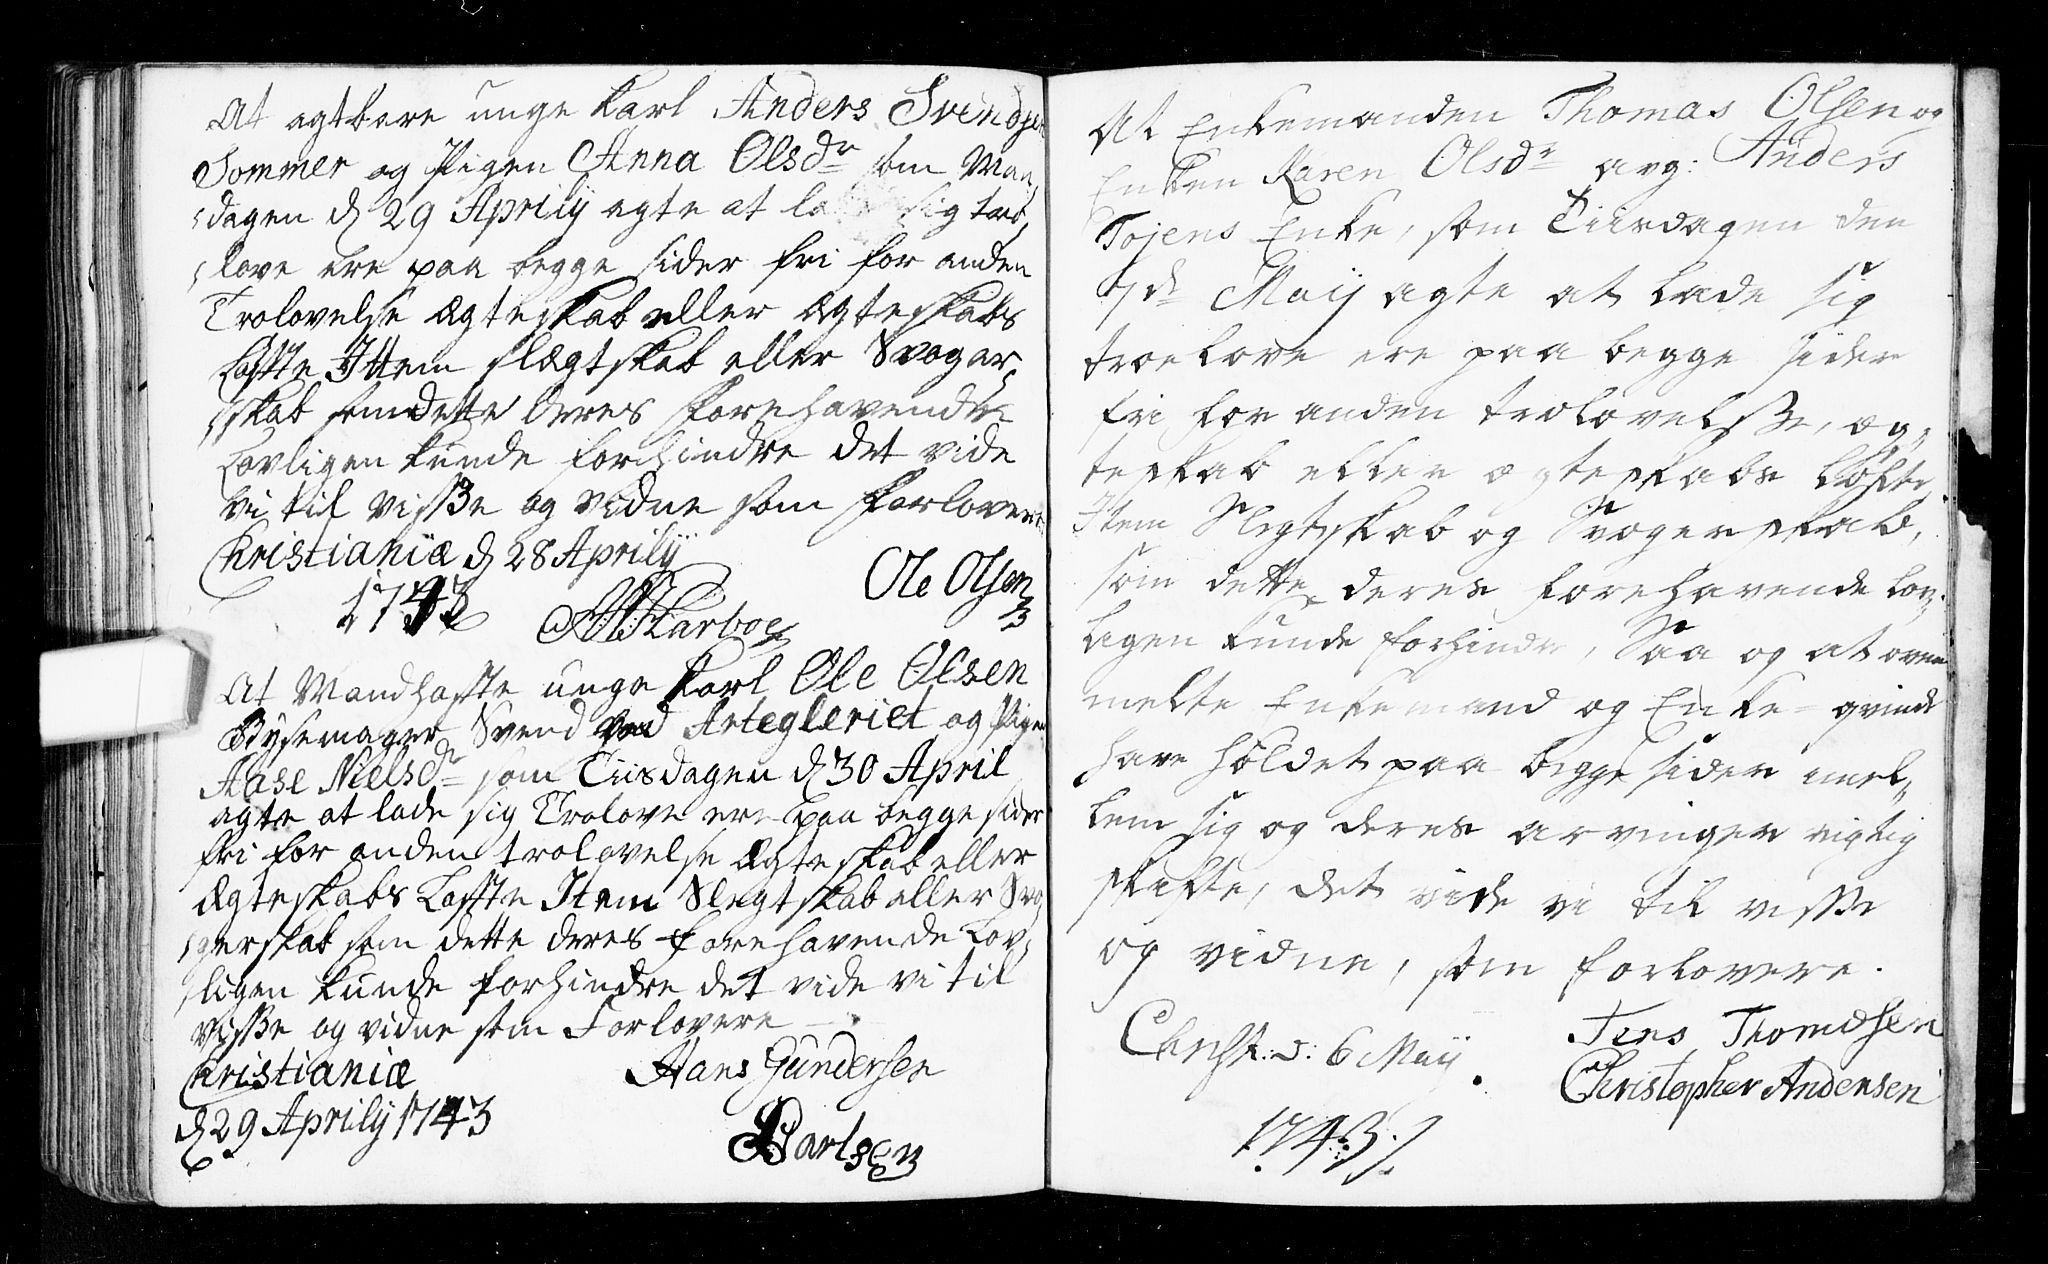 At agtbare unge Karl Anders Svendsen
Sommer og Pigen Anna Olsdr som Man,
,dagen d 29 Aprilij agte at lade sig tro,
,love ere paa begge sider fri for anden
Trolovelse Ægteskab eller Ægteskabs
Løfte Ittem slægtskab eller Svoger,
,skab som dette deres Forehavende
Lovligen kunde forhindre det vide
vi til visse og vidne som Forlovere
Christianiæ d 28 Aprilij
1743
Ole Olsen
At Mandhafte unge Karl Ole Olsen
Bysemager Svend ved Artegleriet og Pigen
Aase Nielsdr som Tiisdagen d 30 April
agte at lade sig Trolove ere paa begge sider
fri for anden trolovelse Ægteskab eller
Ægteskabs Løfte Item Slegtskab eller Svo,
,gerskab som dette deres Forehavende Lov,
,ligen kunde forhindre det vide vi til
visse og vidne som Forlovere
Christianiæ
d 29 Aprilij 1743
Hans Gundersen
Barlsen
At Enkemanden Thomas Olsen og
Enken Karen Olsdr avg: Anders
Tojens Enke, som Tiisdagen den
7de Maij agte at lade sig
troelove ere paa begge sider
fri for anden trolovelsse, æg,,
teskab eller ægteskabs løfte,
Item Slegtskab og Svogerskab,
som dette deres forehavende lov,,
ligen kunde forhindre, Saa og at oven
melte Enkemand og Enke-qvinde
have holdet paa begge sider imel,,
lem sig og deres arvinger rigtig
skifte, det vide vi til visse
og vidne, som forlovere.
Christ: d: 6 Maij
1743
Jens Thomesen
Christopher Andersen